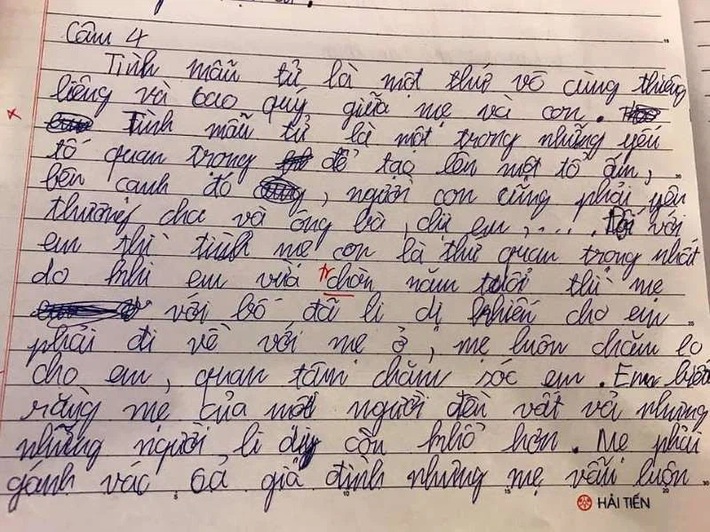 Câu 4
Tình mẫu tử là một thứ vô cùng thiêng
liêng và bao quý giữa mẹ và con.
Tình mẫu tử là một trong những yếu
tố quan trong để tạo lên một tổ ấm,
bên cạnh đó, người con cũng phải yêu
thương cha và ông bà, chị em,.... với
em thì tình mẹ con là thứ quan trọng nhất
do khi em vừa tr chòn năm tuổi thì mẹ
với bố đã li dị khiến cho em
phải đi về với mẹ ở, mẹ luôn chăm lo
cho em, quan tâm chăm sóc em. Em
rằng mẹ của một người đền vất vả nhưng
những người li dị còn khổ hơn. Mẹ phải
gánh vác cả gia đình nhưng mẹ vẫn luôn
HẢI TIẾN